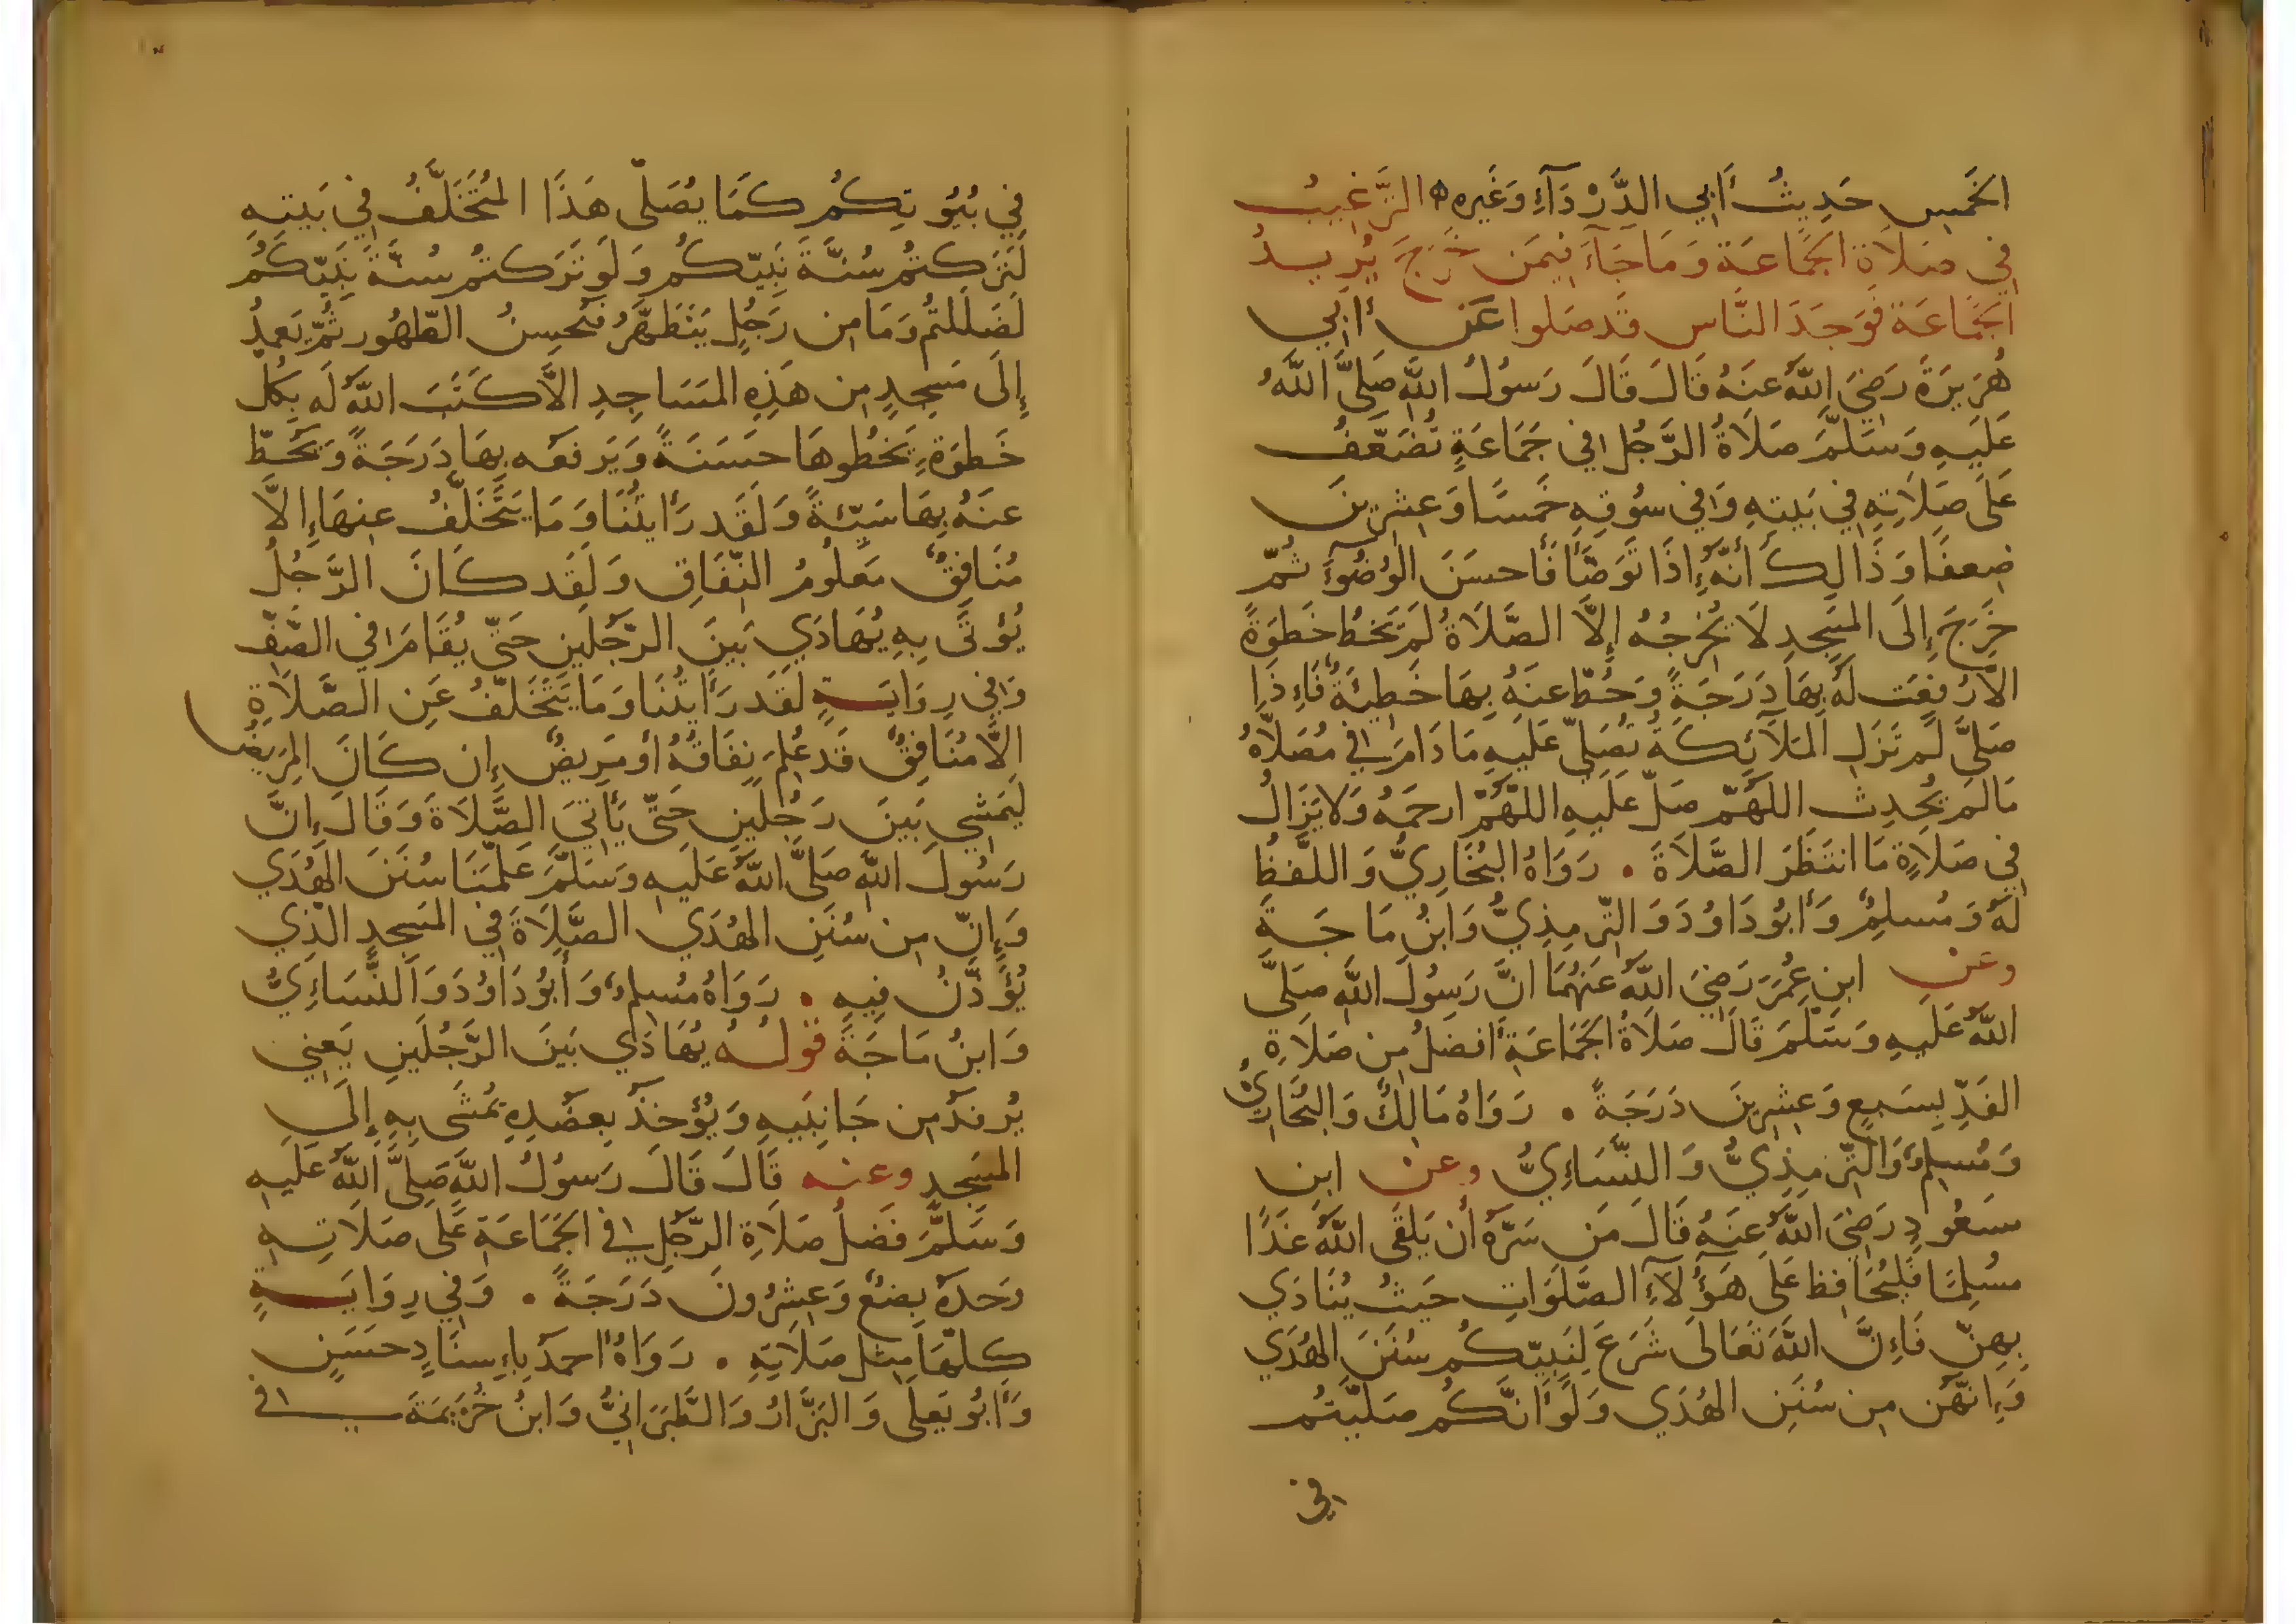 الخَمِسِ حَدِيثُ أَبِي الدَّرْدَآءِ وَغَيرِه ه التَّرغِيبُ
فِي صَلَاَةِ الجَمَاعَةِ وَمَا جَآءَ فِيمَن خَرَجَ يُرِيدُ
الجَمَاعَةَ فَوَجَدَ النَّاس قَد صَلوا عَن أَبِي
هُرَيرَةَ رَضِيَ اللَّهُ عَنهُ قَالَ قَالَ رَسُولُ اللَّهِ صَلَّى اللَّهُ
عَلَيهِ وَسَلَّمَ صَلَاةُ الرَّجُلِ فِي جَمَاعَةٍ تُضَعَّفُ
عَلَى صَلَاتِهِ فِي بَيتِهِ وَفِي سُوقِهِ خَمسًا وَعِشرِينَ
ضِعفًا وَذَالِكَ أَنَّهُ إِذَا تَوَضَّأَ فَأَحسَنَ الوُضُوٓءَ ثُمَّ
خَرَجَ إِلَى المَسجِدِ لَا يُخرِجُهُ إِلَّا الصَّلَاةُ لَم يَخطُ خَطوَةً
الَّا رُفِعَت لَهُ بِهَا دَرَجَةً وَحُطَّ عنهُ بِهَا خَطِيئَةٌ فَإِذَا
صَلَّى لَم تَزَلِ المَلَآئِكَةُ تُصَلِّي عَلَيهِ مَا دَامَ فِي مُصَلَّاهُ
مَا لَم يُحدِث اللَّهُمَّ صَلِّ عَلَيهِ اللَّهُمَّ ارحَمهُ وَلَا يَزَالُ
فِي صَلَاةٍ مَا انتَظَرَ الصَّلَاةَ . رَوَاهُ البُخَارِيُّ وَاللَّفظُ
لَهُ وَمُسلِمٌ وَأَبُو دَاوُدَ وَالتِّرمِذِيُّ وَابنُ مَاجَةَ
وعَن ابنِ عُمَرَ رَضِيَ اللَّهُ عَنهُمَا انَّ رَسُولَ اللَّهِ صَلَّى
اللَّهُ عَلَيهِ وَسَلَّمَ قَالَ صَلَاةُ الجَمَاعَةِ أَفضَلُ مِن صَلَاةِ
الفَذِّ بِسَبعٍ وَعِشرِينَ دَرَجَةً . رَوَاهُ مَالِكٌ وَالبُخَارِيُّ
وَمُسلِمٌ وَالتِّرمِذِيُّ وَالنَّسَاءِيُّ وعن ابنِ
مسعُودٍ رَضِيَ اللَّهُ عَنهُ قَالَ مَن سَرَّهُ أَن يَلقَى اللَّهَ غَدًا
مُسلِمًا فَليُحَافِظ عَلَى هَؤُلَآءِ الصَّلَوَاتِ حَيثُ يُنَادَي
بِهِنَّ فَإِنَّ اللَّهَ تَعَالَى شَرَعَ لِنَبِيِّكُم سُنَنَ الهُدَي
وَإِنَّهُن مِن سُنَنِ الهُدَي وَلَو أَنَّكُم صَلَّيتُم
فِي
فِي بُيُوتِكُم كَمَا يُصَلِّي هَذَا المُتَخَلِّفُ فِي بَيتِهِ
لَتَرَكتُم سُنَّةَ نَبِيِّكُم وَلَو تَرَكتُم سُنَّةَ نَبِيِّكُم
لَضَلَلتُم وَمَا مِن رَجُلٍ يَتَطَهَّرُ فَيُحسِنُ الطّهُورَ ثُمَّ يَعمِدُ
إِلَى مَسجِدٍ مِن هَذِهِ المَسَاجِدِ الاَّ كَتَبَ اللَّهُ لَه بِكُلِّ
خَطوَةٍ يَخطُوهَا حَسَنَةً وَيَرفَعُه بِهَا دَرَجَةً وَيَحُطّ
عَنهُ بِهَا سَيِّئَةً وَلَقَد رَأَيتُنَا وَمَا يَتَخَلَّفُ عَنهَا إِلاَّ
مُنَافِقٌ مَعلُومُ النِّفَاقِ وَلَقَد كَانَ الرَّجُلُ
يُؤتَى بِهِ يُهَادَي بَينَ الرَّجُلَينِ حَتَّى يُقَامَ فِي الصَّفِّ
وَفِي رِوَايَةٍ لَقَد رَأَيتُنَا وَمَا يَتَخَلَّفُ عَنِ الصَّلَاَةِ
الاَّ مُنَافِقٌ قَد عُلِمَ نِفَاقُهُ أَو مَرِيضٌ إِن كَانَ المَرِيضُ
لَيَمشِي بَينَ رَجُلَينِ حَتَّى يَأتِيَ الصَّلَاةَ وَقَالَ إِنَّ
رَسُولَ اللَّهِ صَلَّى اللَّهُ عَلَيهِ وَسَلَّمَ عَلَّمَنَا سُنَنَ الهُدَي
وَإِنَّ مِن سُنَنِ الهُدَي الصَّلَاةَ فِي المَسجِدِ الَّذِي
يُؤَذَّنُ فِيهِ . رَوَاهُ مُسلِمٌ وَأَبُو دَاوُدَ وَالنَّسَاءِيُّ
وَابنُ مَاجَةَ قولُهُ يُهَادَي بَينَ الرَّجُلَينِ يَعنِي
يُرفَدُ مِن جَانِبَيهِ وَيُؤخَذُ بِعضُدِهِ يُمشَى بِهِ إِلَى
المَسجِدِ وعنه قَالَ قَالَ رَسُولُ اللَّهِ صَلَّى اللَّهُ عَلَيهِ
وَسَلَّمَ فَضلُ صَلَاةِ الرَّجُلِ فِي الجَمَاعَةِ عَلَى صَلَاتِهِ
وَحدَهُ بِضعٌ وَعِشرُونَ دَرَجَةً . وَفِي رِوَايَةٍ
كِلّهَا مِثلُ صَلَاتِهِ . رَوَاهُ احمدُ بِإِسنَادٍ حَسَنٍ
وَأَبُو يَعلَى وَالبَزَّارُ وَالطَّبَرَانِيُّ وَابنُ خُزَيمَةَ في